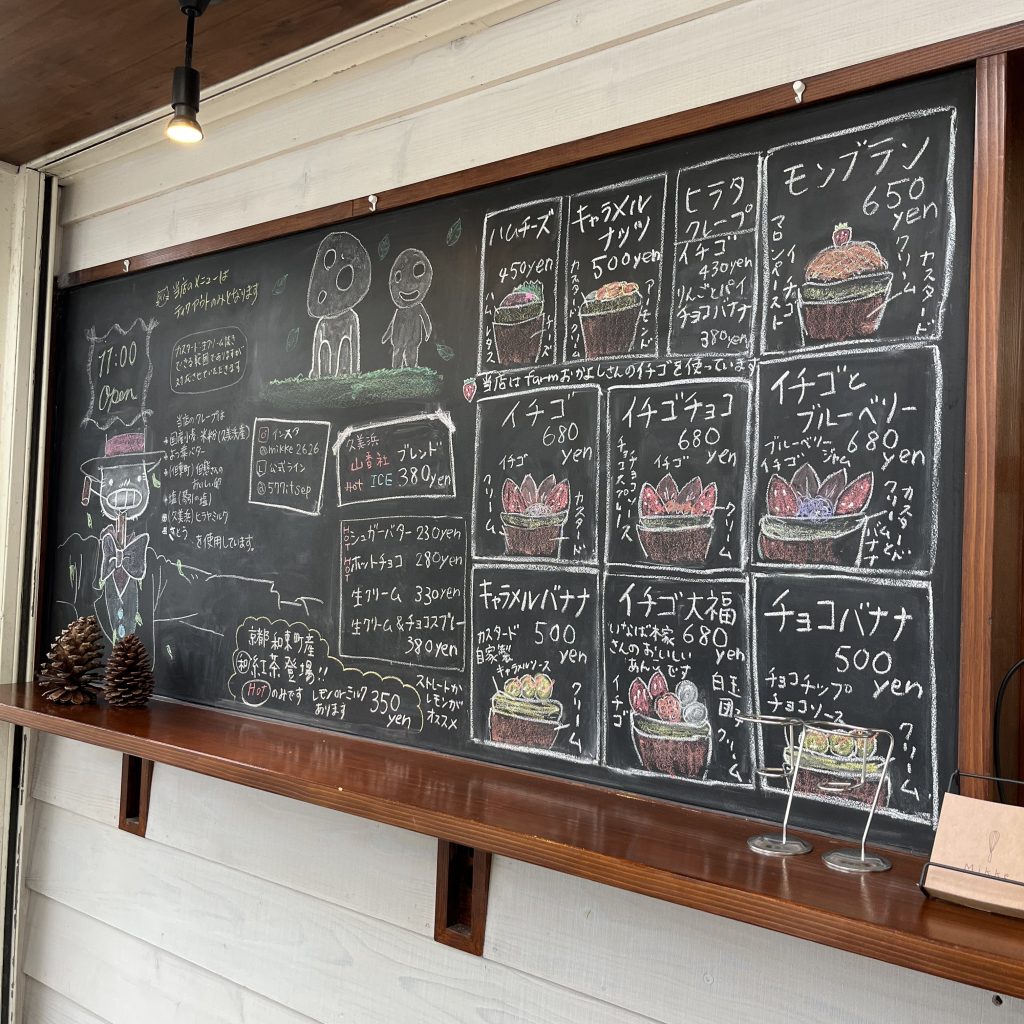 当店のメニューは
テイクアウトのみとなります
11:00
Open
カスタード・生クリーム抜き
できる範囲でありますが
対応させていただきます
当店のクレープは
国産小麦 米粉(久美浜産)
よつ葉バター
おいしい卵
塩
(久美浜)ヒラヤミルク
さとう を使用しています。
インスタ
@mikke2626
公式ライン
@577itsep
久美浜
山香社 ブレンド
Hot ICE 380yen
HOT シュガーバター 230yen
HOT ホットチョコ 280yen
生クリーム 330yen
生クリーム&チョコスプレー
380yen
京都和束町産
和紅茶登場!!
Hotのみです レモンorミルク
あります
350
yen
ストレートか
レモンが
オススメ
ハムチーズ
450yen
ハム・レタス
チーズ
キャラメル
ナッツ
500yen
カスタード・クリーム
アーモンド
ヒラタ
クレープ
イチゴ
430yen
りんごとパイ
チョコバナナ
380yen
モンブラン
650
yen
マロンペースト
イチゴ
クリーム
カスタード
当店はfarmおかよしさんのイチゴを使っています
イチゴ
680
yen
イチゴ
クリーム
カスタード
イチゴチョコ
680
yen
チョコソース
チョコスプレー
イチゴ
クリーム
イチゴと
ブルーベリー
680
yen
ブルーベリージャム
イチゴ
カスタード
クリーム
バナナ
キャラメルバナナ
500
yen
カスタード
自家製
キャラメルソース
クリーム
イチゴ大福
680
yen
いなば本家
さんのおいしい
あんこです
イチゴ
白玉
団子
クリーム
チョコバナナ
500
yen
チョコチップ
チョコソース
クリーム
Mikke